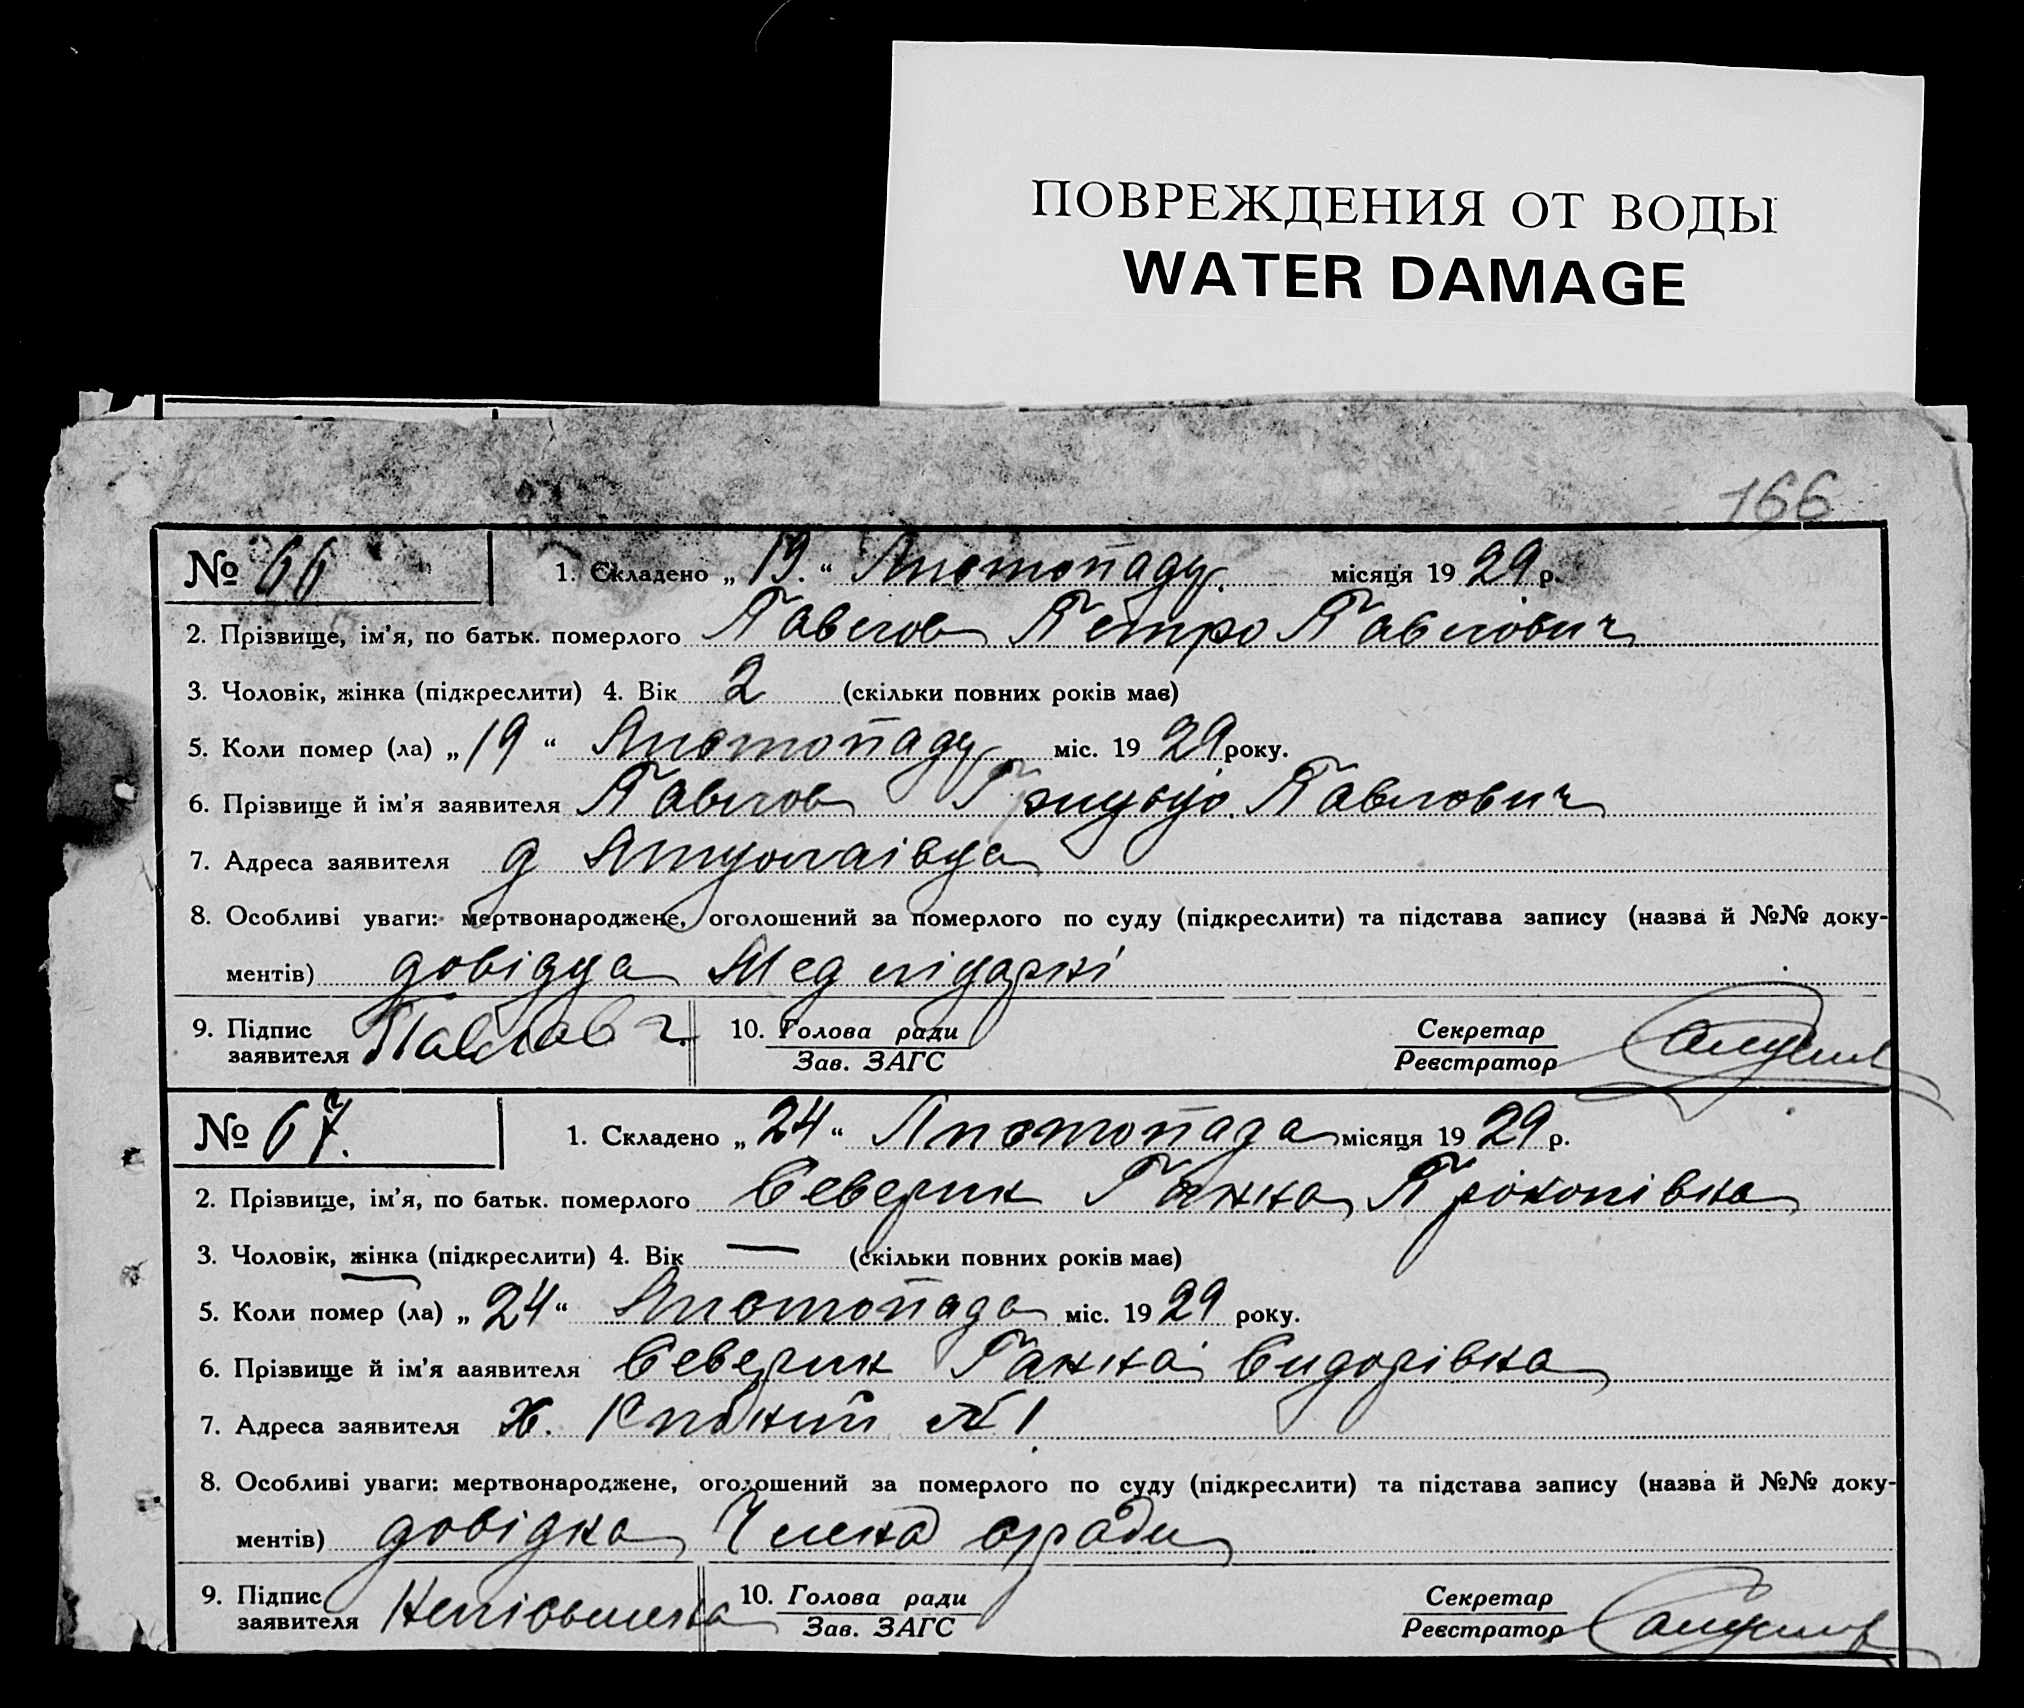 ПОВРЕЖДЕНИЯ ОТ ВОДЫ
WATER DAMAGE
166
№ 66 1. Складено „ 19. “ Листопаду. місяця 19 29 р.
2. Прізвище, ім'я, по батьк. померлого Павлов Петро Павлович
3. Чоловік, жінка (підкреслити) 4. Вік 2 (скільки повних років має)
5. Коли помер (ла) „ 19 “ Листопаду міс. 19 29 року.
6. Прізвище й ім'я заявителя Павлов Грицько Павлович
7. Адреса заявителя
8. Особливі уваги: мертвонароджене, оголошений за померлого по суду (підкреслити) та підстава запису (назва й №№ доку-
ментів) довідка Мед лікаркі
9. Підпис заявителя Павлов Г. 10. Голова ради Секретар
Зав. ЗАГС Реєстратор
№ 67. 1. Складено „ 24 “ Листопада місяця 19 29 р.
2. Прізвище, ім'я, по батьк. померлого Северин Ганна Прокопівна
3. Чоловік, жінка (підкреслити) 4. Вік — (скільки повних років має)
5. Коли помер (ла) „ 24 “ Листопада міс. 19 29 року.
6. Прізвище й ім'я ааявителя Северин Ганна Сидорівна
7. Адреса заявителя х. № 1
8. Особливі уваги: мертвонароджене, оголошений за померлого по суду (підкреслити) та підстава запису (назва й №№ доку-
ментів) довідка Члена с/ради
9. Підпис заявителя Неписьмена 10. Голова ради Секретар
Зав. ЗАГС Реєстратор